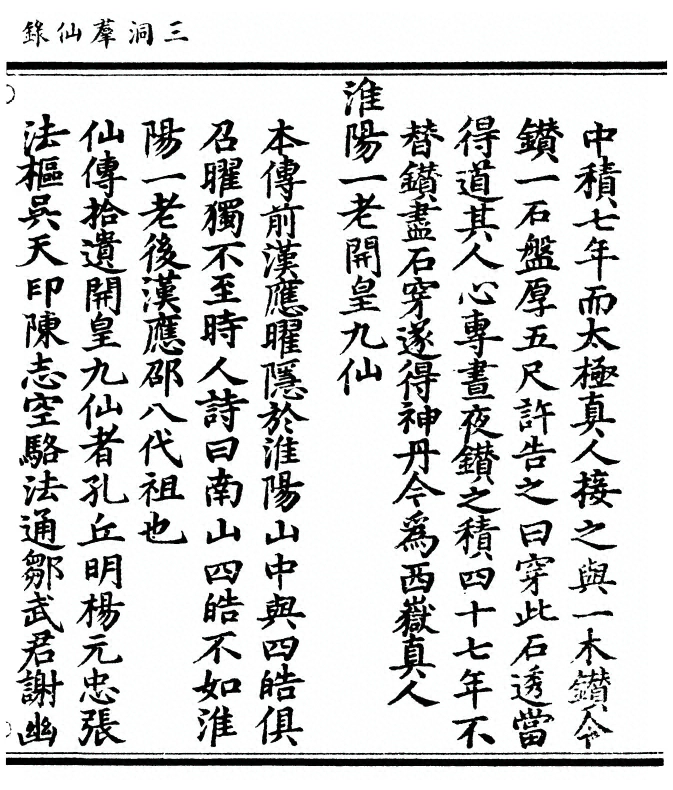 三洞羣仙錄
中積七年而太極真人接之與一木鑚令
鑚一石盤厚五尺許告之曰穿此石透當
得道其人心專晝夜鑚之積四十七年不
替鑚盡石穿遂得神丹今爲西嶽真人
淮陽一老開皇九仙
本傳前漢應曜隱於淮陽山中與四皓俱
召曜獨不至時人詩曰南山四皓不如淮
陽一老後漢應邵八代祖也
仙傳拾遺開皇九仙者孔丘明楊元忠張
法樞吳天印陳志空駱法通鄒武君謝幽